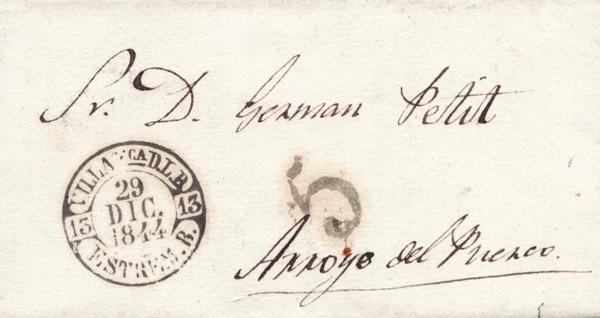 Sr. D. German Petit
VILLAFCA D.L.B.
29
DIC.
1844
13 13
ESTREM. B.
5
Arroyo del Puerco.